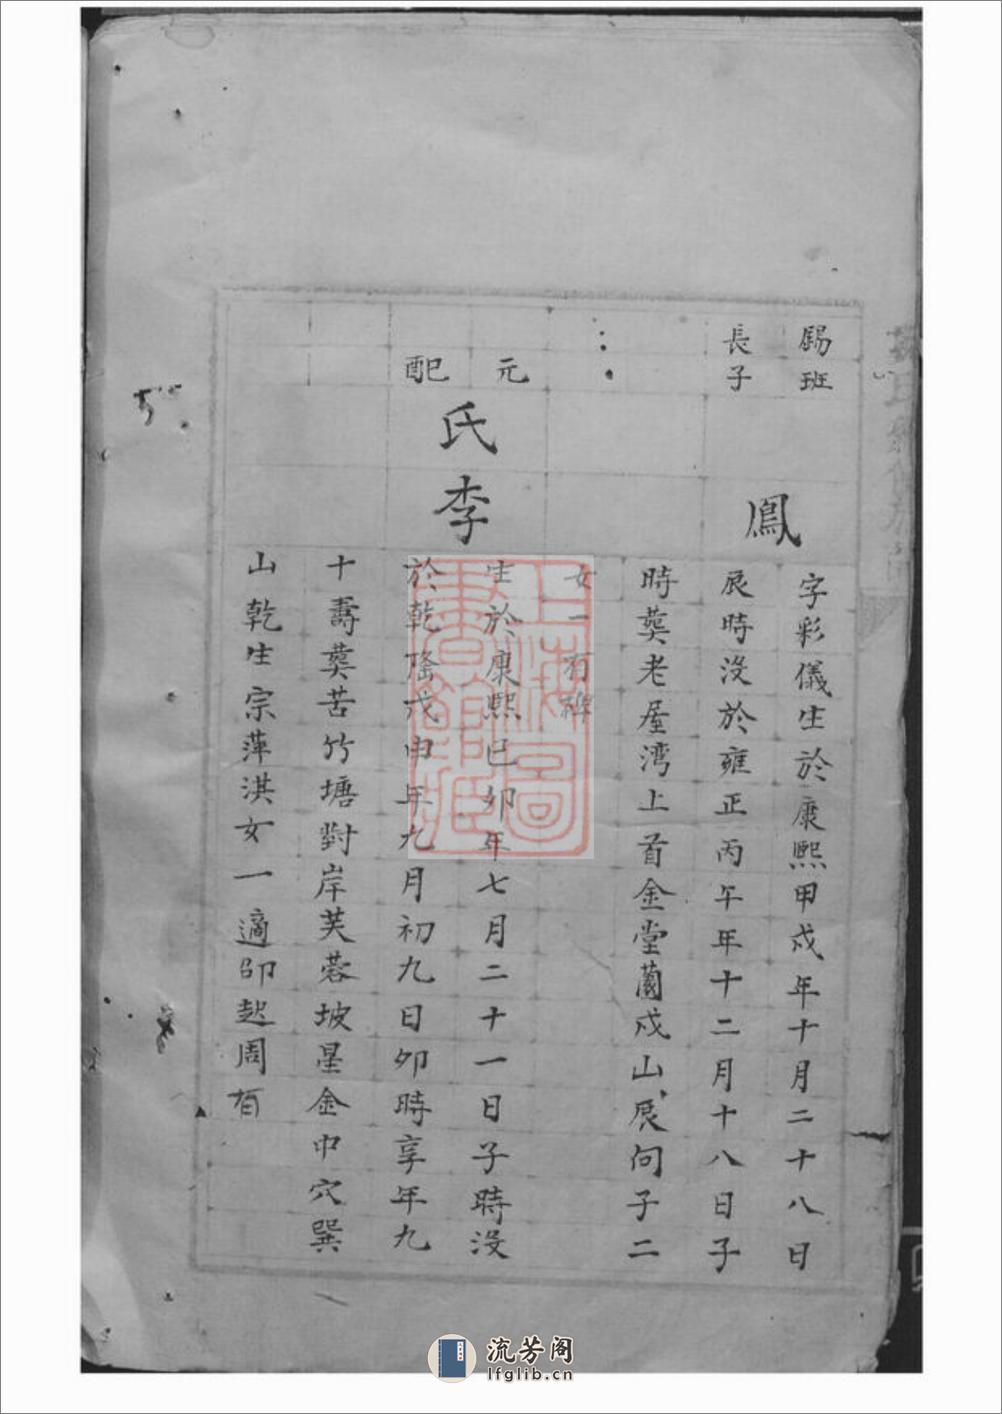 賜班
長子
鳳
字彩儀生於康熙甲戍年十月二十八日
辰時沒於雍正丙午年十二月十八日子
時葬老屋湾上首金堂薗戍山辰向子二
女一有碑
元配
氏李
生於康熙已卯年七月二十一日子時沒
於乾隆戊申年九月初九日卯時享年九
十壽葬苦竹塘對岸芙蓉坡星金巾穴巽
山乾生宗萍淇女一適邵起周有
上海圖書館藏
流芳阁
lfglib.cn